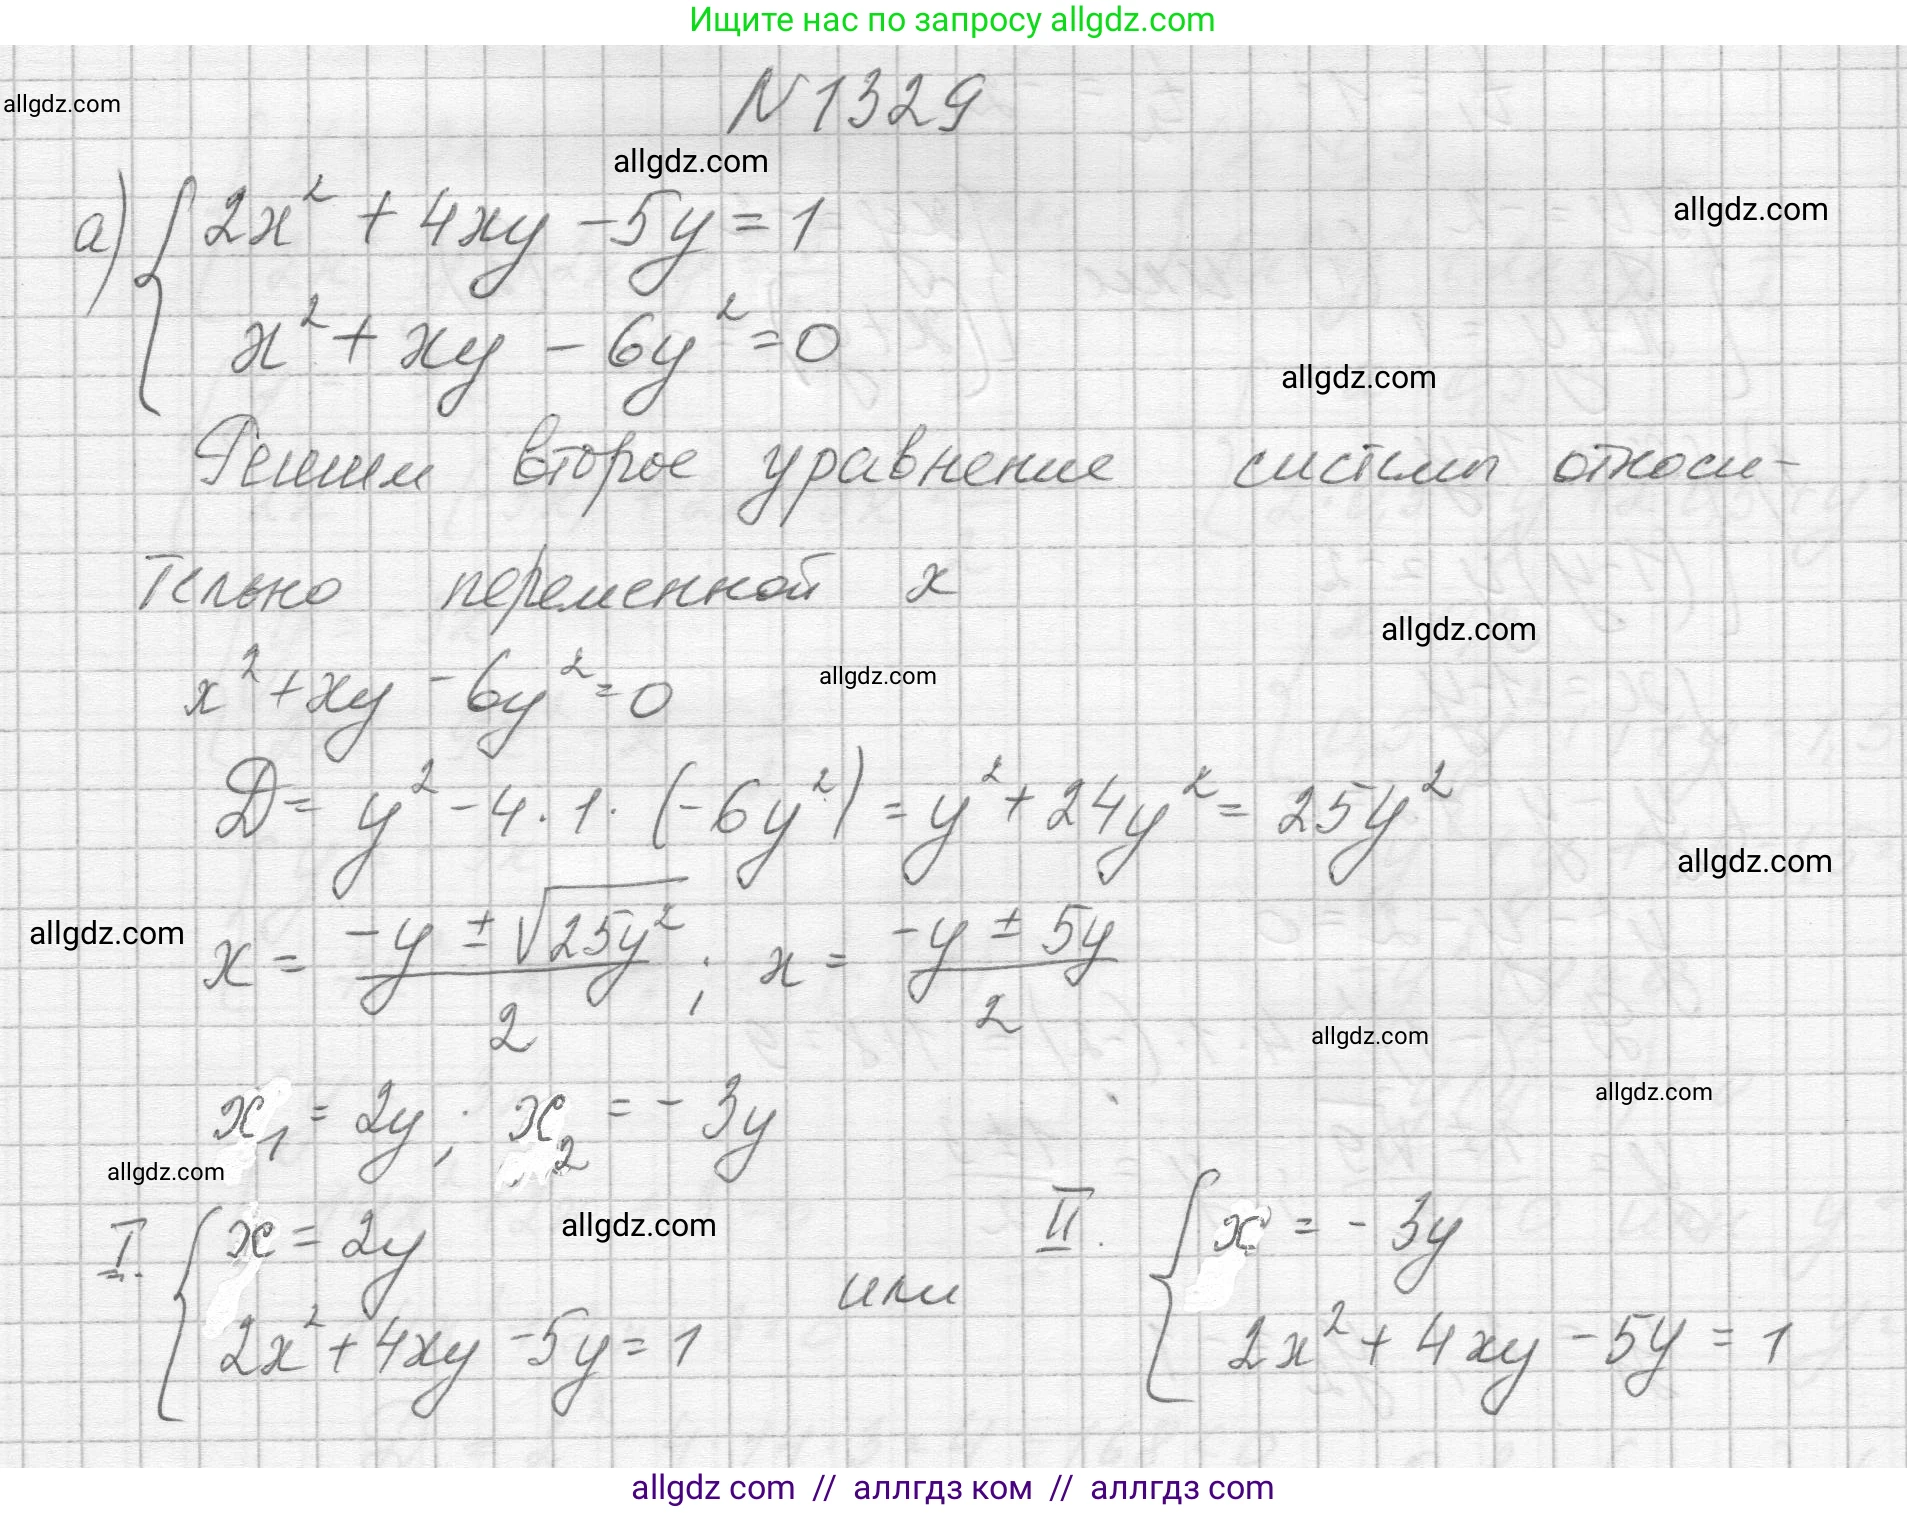 Ищите нас по запросу allgdz.com
N 1329
allgdz.com
allgdz.com
а) { 2x² + 4xy - 5y = 1
allgdz.com
x² + xy - 6y² = 0
allgdz.com
Решим второе уравнение системы относи-
тельно переменной x
allgdz.com
x² + xy - 6y² = 0
allgdz.com
D = y² - 4 · 1 · (-6y²) = y² + 24y² = 25y²
allgdz.com
allgdz.com
x = (-y ± √25y²)/2 ; x = (-y ± 5y)/2
allgdz.com
allgdz.com
x₁ = 2y ; x₂ = - 3y
allgdz.com
I. { x = 2y
allgdz.com
2x² + 4xy - 5y = 1
или
II. { x = - 3y
2x² + 4xy - 5y = 1
allgdz com // аллгдз ком // аллгдз com